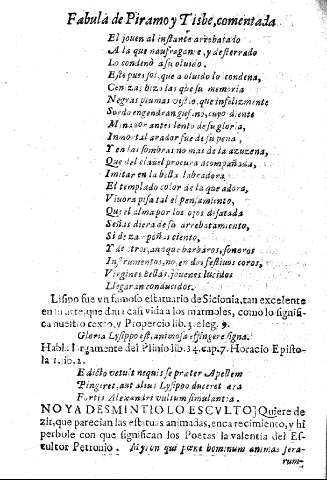 Fabula de Piramo y Tisbe, comentada
El joven al instante arrebatado
A la que naufragante, y desterrado
Lo condenò a su olvido.
Este pues sol, que a olvido lo condena,
Cenizas hizo las que su memoria
Negras plumas vistiò, que infelizmente
Sordo engendran gusano, cuyo diente
Minador antes lento de su gloria,
Inmortal arador fue de su pena,
Y en las sombras no mas de la azuzena,
Que del clavel procura acompañada,
Imitar en la bella labradora
El templado color de la que adora,
Vivora pisa tal el pensamiento,
Que el alma por los ojos desatada
Señas diera de su arrebatamiento,
Si de zampoñas ciento,
Y de otros, aunque barbaros, sonoros
Instrumentos, no, en dos festivos coros,
Virgines bellas, jouenes lucidos
Llegaran conducidos.
Lisipo fue vn famoso estatuario de Sicionia, tan excelente
en su arte, que daua casi vida a los marmoles, como lo signifi-
ca nuestro texto, y Propercio lib. 3. eleg. 9.
Gloria Lysippo est, animosa effingere signa.
Habla largamente del Plinio lib. 34. cap. 7. Horacio Episto-
la 1. lib. 2.
Edicto vetuit nequis se præter Apellem
Pingeret, aut alius Lysippo duceret æra
Fortis Alexandri vultum simulantia.
NO YA DESMINTIO LO ESCVLTO] Quiere de-
zir, que parecian las estatuas animadas, encarecimiento, y hi
perbole con que significan los Poetas la valentia del Es-
cultor Petronio. Myron qui pœne hominum animas fera-
rum-